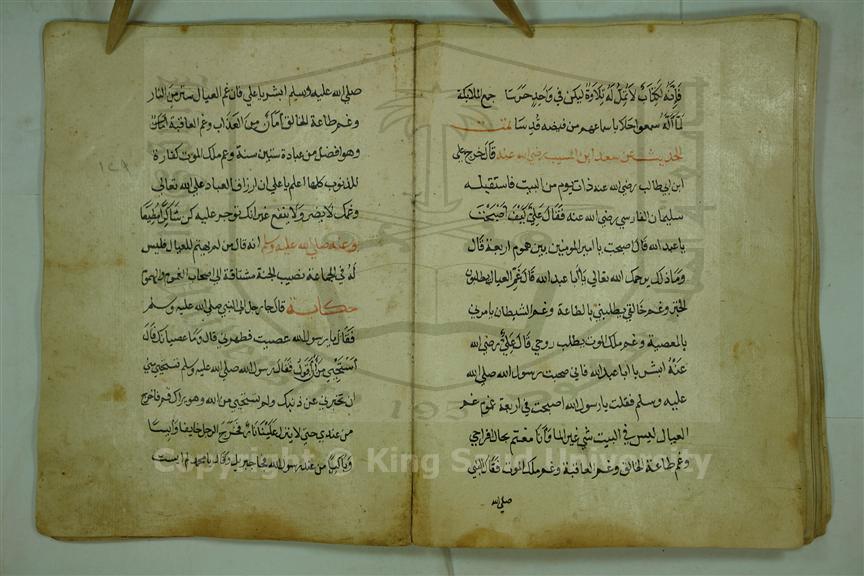 فإنه لكتاب لا تمل له تلاوة ليكن في واحد حرسا جمع الملائكة
لما اله سمعوا خلا باسماعهم من فيضه قدسا تمت
الحديث عن سعد ابن المسيب رضي الله عنه قال خرج علي
ابن ابي طالب رضي الله عنه ذات يوم من البيت فاستقبله
سليمان الفارسي رضي الله عنه فقال علي كيف اصبحت
يا عبد الله قال اصبحت يا امير المومنين بين هموم اربعة قال
وما ذلك يرحمك الله تعالى يا أبا عبد الله قال غم العيال يطلبون
الخبز وغم خالقي يطلبني بالطاعة وغم الشيطان يامرني
بالمعصية وغم ملك الموت يطلب روحي قال علي رضي الله
عنه ابشر يا ابا عبد الله فاني صحبت رسول الله صلى الله
عليه وسلم فقلت يا رسول الله اصبحت في اربعة غموم غم
العيال ليس في البيت شي غير الماء وأنا مغتم بحال افراخي
وغم طاعة الخالق وغم العاقبة وغم ملك الموت فقال النبي
صلى الله
صلى الله عليه وسليم ابشر يا علي فان غم العيال ستر من النار
وغم طاعة الخالق أمان من العذاب وغم العاقبة
وهو افضل من عبادة ستين سنة وغم ملك الموت كفارة
للذنوب كلها اعلم يا علي ان ارزاق العباد على الله تعالى
وغمك لا يضر ولا ينفع غير انك توجر عليه كن شاكرا مطيعا
وعنه صلى الله عليه وسلم انه قال من لم يهتم للعيال فليس
له في الجماعة نصيب الجنة مشتاقة الى اصحاب الغموم والهموم
حكاية قال جا رجل الى النبي صلى الله عليه وسلم
فقال يا رسول الله عصيت فطهرني قال وما عصيانك قال
أستحيي من أن أقول فقال رسول الله صلى الله عليه وسلم تستحيي مني
ان تخبرني عن ذنبك ولم تستحيي من الله وهو يراك قم فاخرج
من عندي حتى لا ينزل علينا نار فخرج الرجل خايفا وآيسا
وباكيا من عند رسول الله فجا جبريل وقال يا محمد لم ايست
١٤٩
Copyright © King Saud University
195